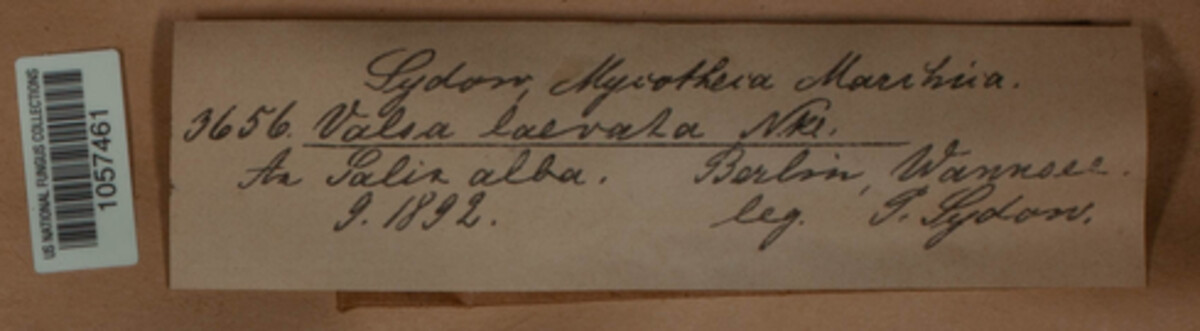 US NATIONAL FUNGUS COLLECTIONS
1057461
Sydow, Mycotheca Marchica.
3656. Valsa laevata Nke.
An Salix alba. Berlin, Wannsee.
9. 1892. leg. P. Sydow.